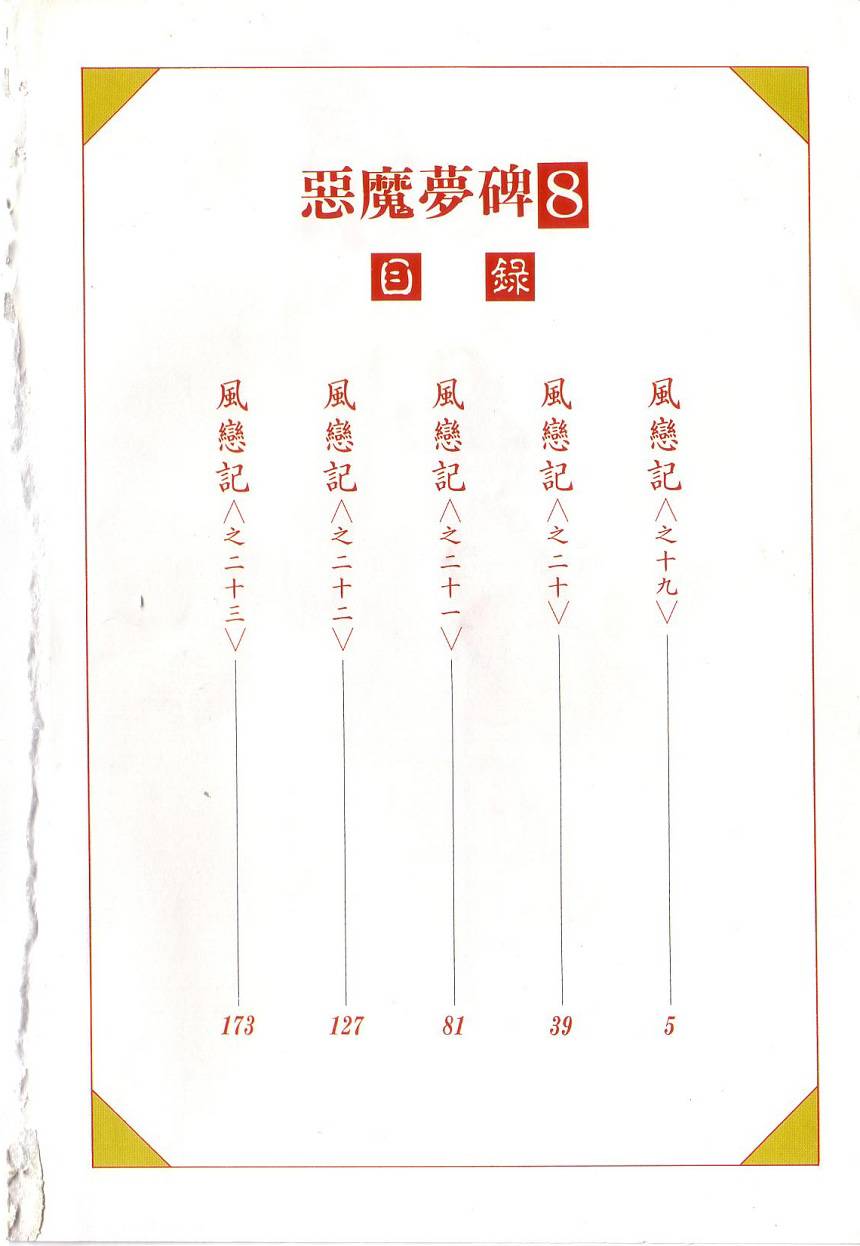 惡魔夢碑8
目錄
風戀記〈之十九〉 5
風戀記〈之二十〉 39
風戀記〈之二十一〉 81
風戀記〈之二十二〉 127
風戀記〈之二十三〉 173